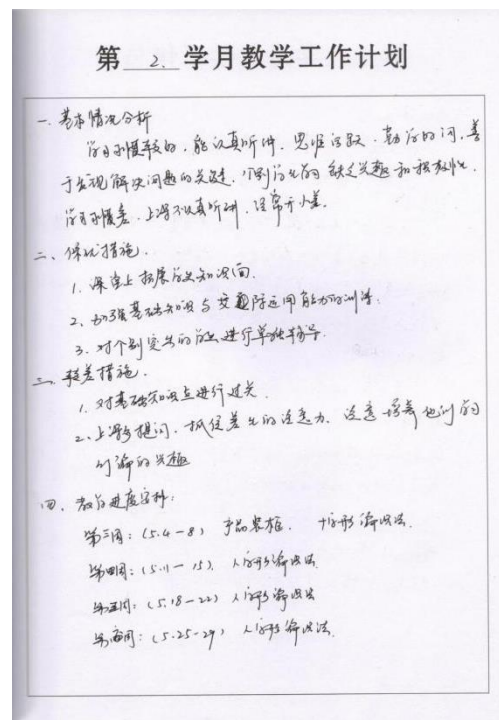 第 2. 学月教学工作计划
一、基本情况分析
学习习惯较好,能认真听讲,思维活跃,勤学好问,善
于发现解决问题的关键,个别学生学习缺乏兴趣和积极性,
学习习惯差,上课不认真听讲,经常开小差。
二、保优措施.
1. 课堂上扩展学生知识面.
2、加强基础知识与实际运用能力的训练.
3. 对个别突出的学生进行单独辅导.
三、转差措施.
1. 对基础知识点进行过关.
2、上课多提问,抓住差生的注意力,注意培养他们的
学习兴趣
四、教学进度安排:
第三周:(5.4-8) 十字形编织法.
第四周:(5.11-15). 人字形编织法.
第五周:(5.18-22) 人字形编织法
第六周:(5.25-29) 人字形编织法.